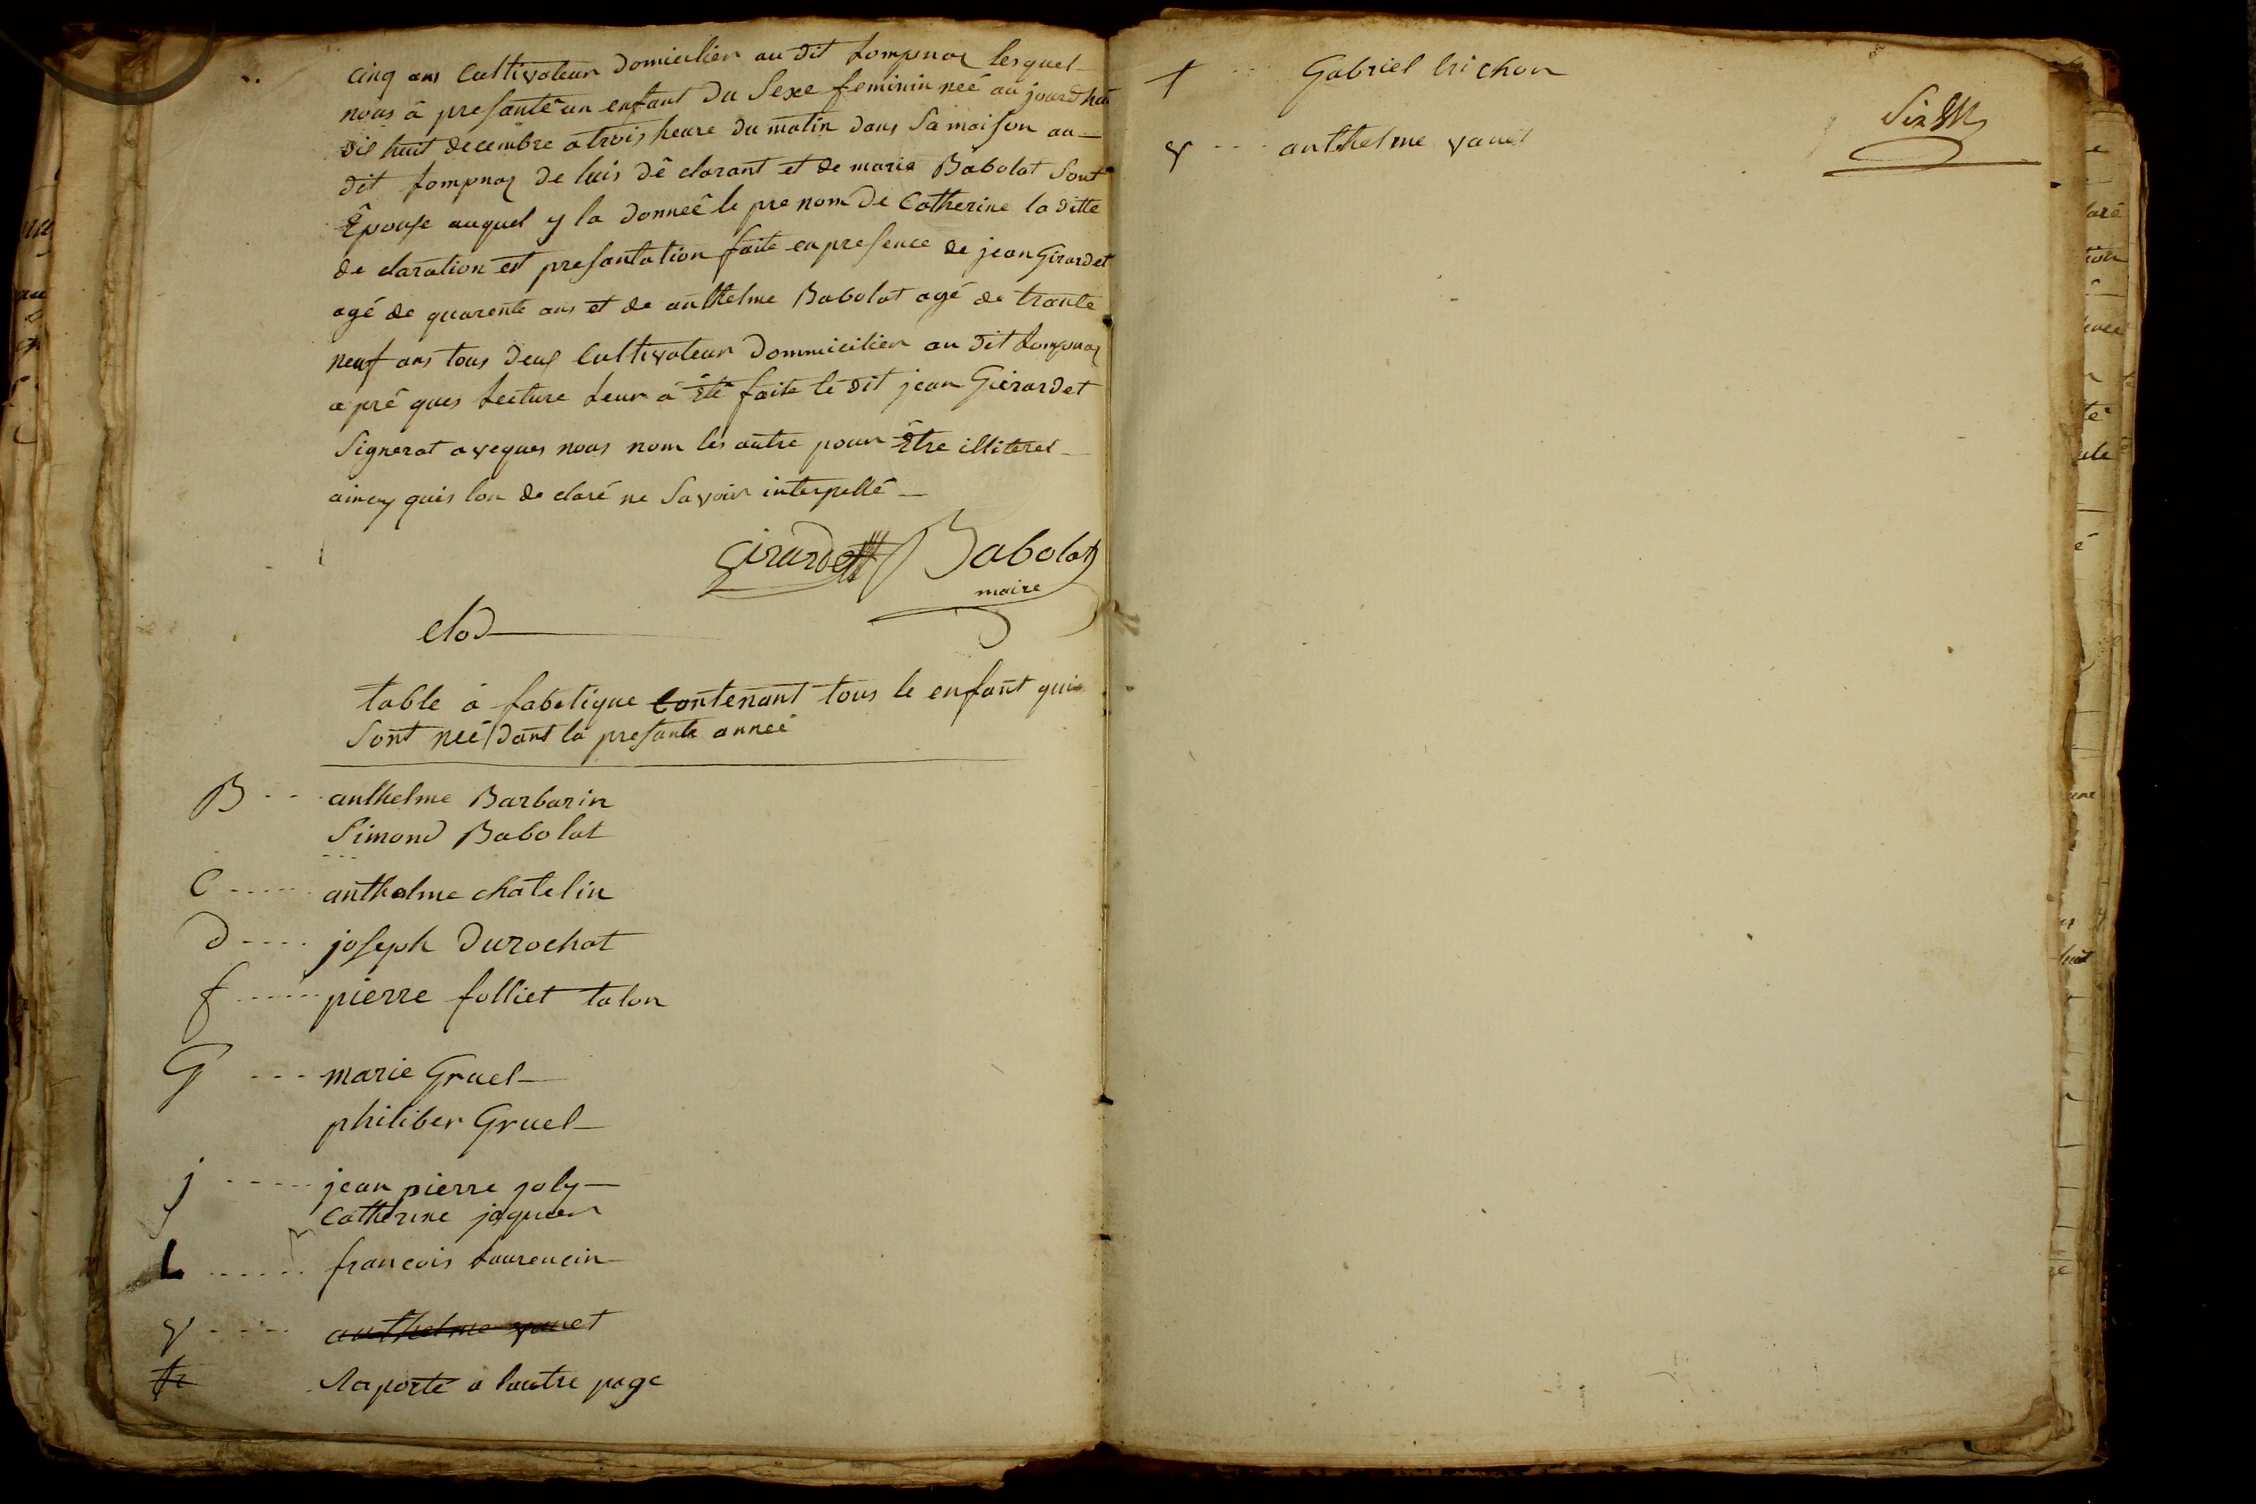 cinq ans Cultivateur domicilier au dit Lompnaz lesquel
nous â presantê un enfant du Sexe feminin neé aujourdhui
dix huit decembre a trois heure du matin dans Sa maison au
dit Lompnaz de luis dê clarant et de marie Babolat Sont
Êpouse auquel y la donneê le pre nom de Catherine la ditte
de claration et presantation faite en presence de jean Girardet
agé de quarente ans et de anthelme Babolat agé de trante
neuf ans tous deux Cultivateur dommicilier au dit Lompnaz
a pré ques Lecture Leur â êtê faite lê dit jean Girardet
Signerat aveques nous nom les autre pour être illiteret
aincy quis lon de claré ne Savoir interpellé
Girardet Babolat
maire
clos
table â fabetique Contenant tous le enfant qui
Sont neé dant la presante anneé
B anthelme Barbarin
Simond Babolat
C anthelme chatelin
D joseph Durochat
f pierre folliet talon
G marie Gruel
philiber Gruel
j jean pierre joly
Catherine jaquier
L francois Laurencin
v anthelme vanet
tr Raporté a lautre page
t Gabriel trichon
Six
v anthelme vanet